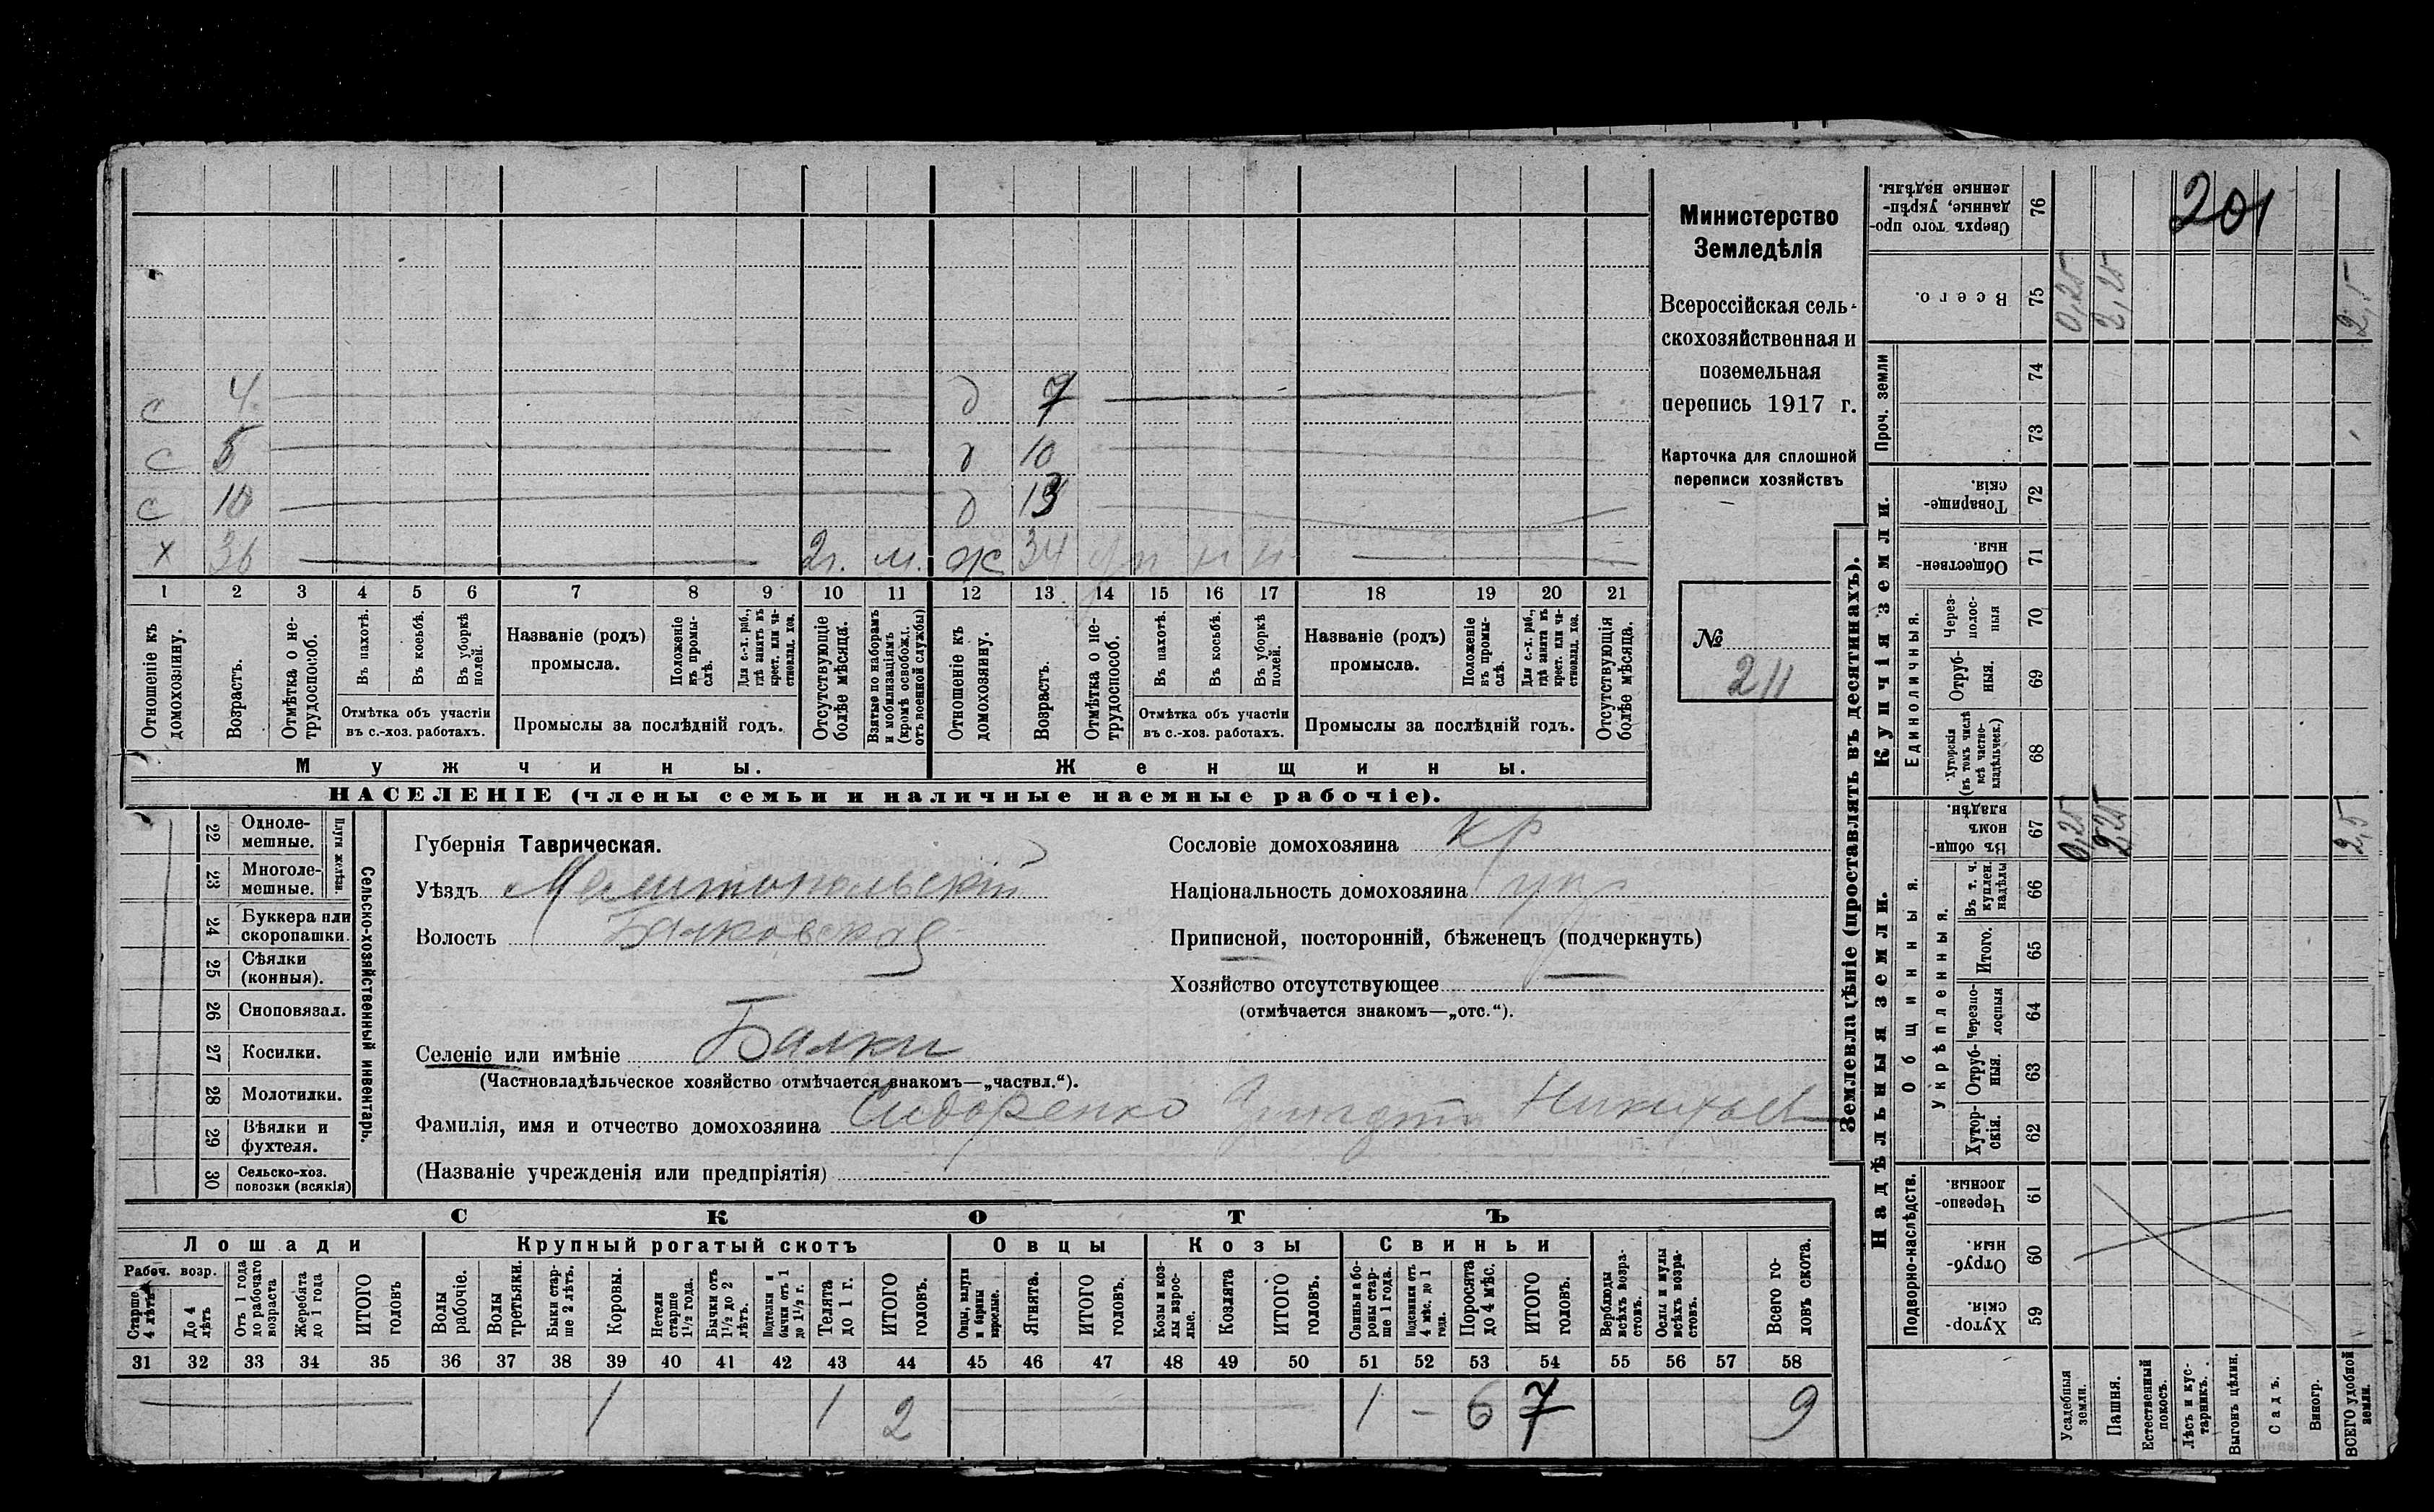 201
Министерство
Земледѣлія
Всероссійская сель-
скохозяйственная и
поземельная
перепись 1917 г.
Карточка для сплошной
переписи хозяйствъ
№
211
с 4 д 7
с 5 д 10
с 10 д 13
х 36 2г. м. ж 34 п п п
1 2 3 4 5 6 7 8 9 10 11 12 13 14 15 16 17 18 19 20 21
Отношеніе къ домохозяину.
Возрастъ.
Отмѣтка о не-трудоспособ.
Въ пахотѣ.
Въ косьбѣ.
Въ уборкѣ полей.
Отмѣтка объ участіи
въ с.-хоз. работахъ.
Названіе (родъ)
промысла.
Положеніе въ промы-слѣ.
Для с.-х. раб., гдѣ занятъ въ крест. или ча-стновлад. хоз.
Промыслы за послѣдній годъ.
Отсутствующіе болѣе мѣсяца.
Взятые по наборамъ и мобилизаціямъ (кромѣ освобожд. отъ военной службы)
Отношеніе къ домохозяину.
Возрастъ.
Отмѣтка о не-трудоспособ.
Въ пахотѣ.
Въ косьбѣ.
Въ уборкѣ полей.
Отмѣтка объ участіи
въ с.-хоз. работахъ.
Названіе (родъ)
промысла.
Положеніе въ промы-слѣ.
Для с.-х. раб., гдѣ занята въ крест. или ча-стновлад. хоз.
Промыслы за послѣдній годъ.
Отсутствующія болѣе мѣсяца.
Мужчины. Женщины.
НАСЕЛЕНІЕ (члены семьи и наличные наемные рабочіе).
Сельско-хозяйственный инвентарь.
Плуги желѣзн.
22 Одноле-мешные.
23 Многоле-мешные.
24 Буккера или скоропашки.
25 Сѣялки (конныя).
26 Сноповязал.
27 Косилки.
28 Молотилки.
29 Вѣялки и фухтеля.
30 Сельско-хоз. повозки (всякія)
Губернія Таврическая.
Уѣздъ Мелитопольскій
Волость Балковская
Селеніе или имѣніе Балки
(Частновладѣльческое хозяйство отмѣчается знакомъ—„частвл.“).
Фамилія, имя и отчество домохозяина Сидоренко Никифоръ
(Названіе учрежденія или предпріятія)
Сословіе домохозяина кр
Національность домохозяина
Приписной, посторонній, бѣженецъ (подчеркнуть)
Хозяйство отсутствующее —
(отмѣчается знакомъ—„отс.“).
СКОТЪ
Лошади Крупный рогатый скотъ Овцы Козы Свиньи
Рабоч. возр.
Старше 4 лѣтъ
До 4 лѣтъ
Отъ 1 года до рабочаго возраста
Жеребята до 1 года
ИТОГО головъ
Волы рабочіе.
Волы третьяки.
Быки стар-ше 2 лѣтъ.
Коровы.
Нетели старше 1½ года.
Бычки отъ 1½ до 2 лѣтъ.
Подтелки и бычки отъ 1 до 1½ г.
Телята до 1 г.
ИТОГО головъ.
Овцы, валухи и бараны взрослые.
Ягнята.
ИТОГО головъ.
Козы и коз-лы взрос-лые.
Козлята
ИТОГО головъ.
Свиньи и бо-ровы стар-ше 1 года.
Подсвинки отъ 4 мѣс. до 1 года.
Поросята до 4 мѣс.
ИТОГО головъ.
Верблюды всѣхъ возра-стовъ.
Ослы и мулы всѣхъ возра-стовъ.
Всего го-ловъ скота.
31 32 33 34 35 36 37 38 39 40 41 42 43 44 45 46 47 48 49 50 51 52 53 54 55 56 57 58
1 1 2 1 — 6 7 9
Землевладѣніе (проставлять въ десятинахъ).
Надѣльныя земли.
Подворно-наслѣдств.
Хутор-скія. 59
Отруб-ныя. 60
Черезпо-лосныя. 61
Общинныя.
Укрѣпленныя.
Хутор-скія. 62
Отруб-ныя. 63
Черезпо-лосныя 64
Итого. 65
Въ т. ч. куплен. надѣлы 66
Въ общин-номъ владѣн. 67 0,25 2,25 2,5
Купчія земли.
Единоличныя.
Хуторскія (въ томъ числѣ всѣ частно-владѣльческ.) 68
Отруб-ныя. 69
Через-полос-ныя 70
Обществен-ныя. 71
Товарище-скія. 72
Проч. земли
73
74
Всего. 75 0,25 2,25 2,5
Сверхъ того про-данные, укрѣп-ленные надѣлы. 76
Усадебныя земли.
Пашня.
Естественный покосъ.
Лѣсъ и кус-тарникъ.
Выгонъ цѣлин.
Садъ.
Виногр.
ВСЕГО удобной земли.